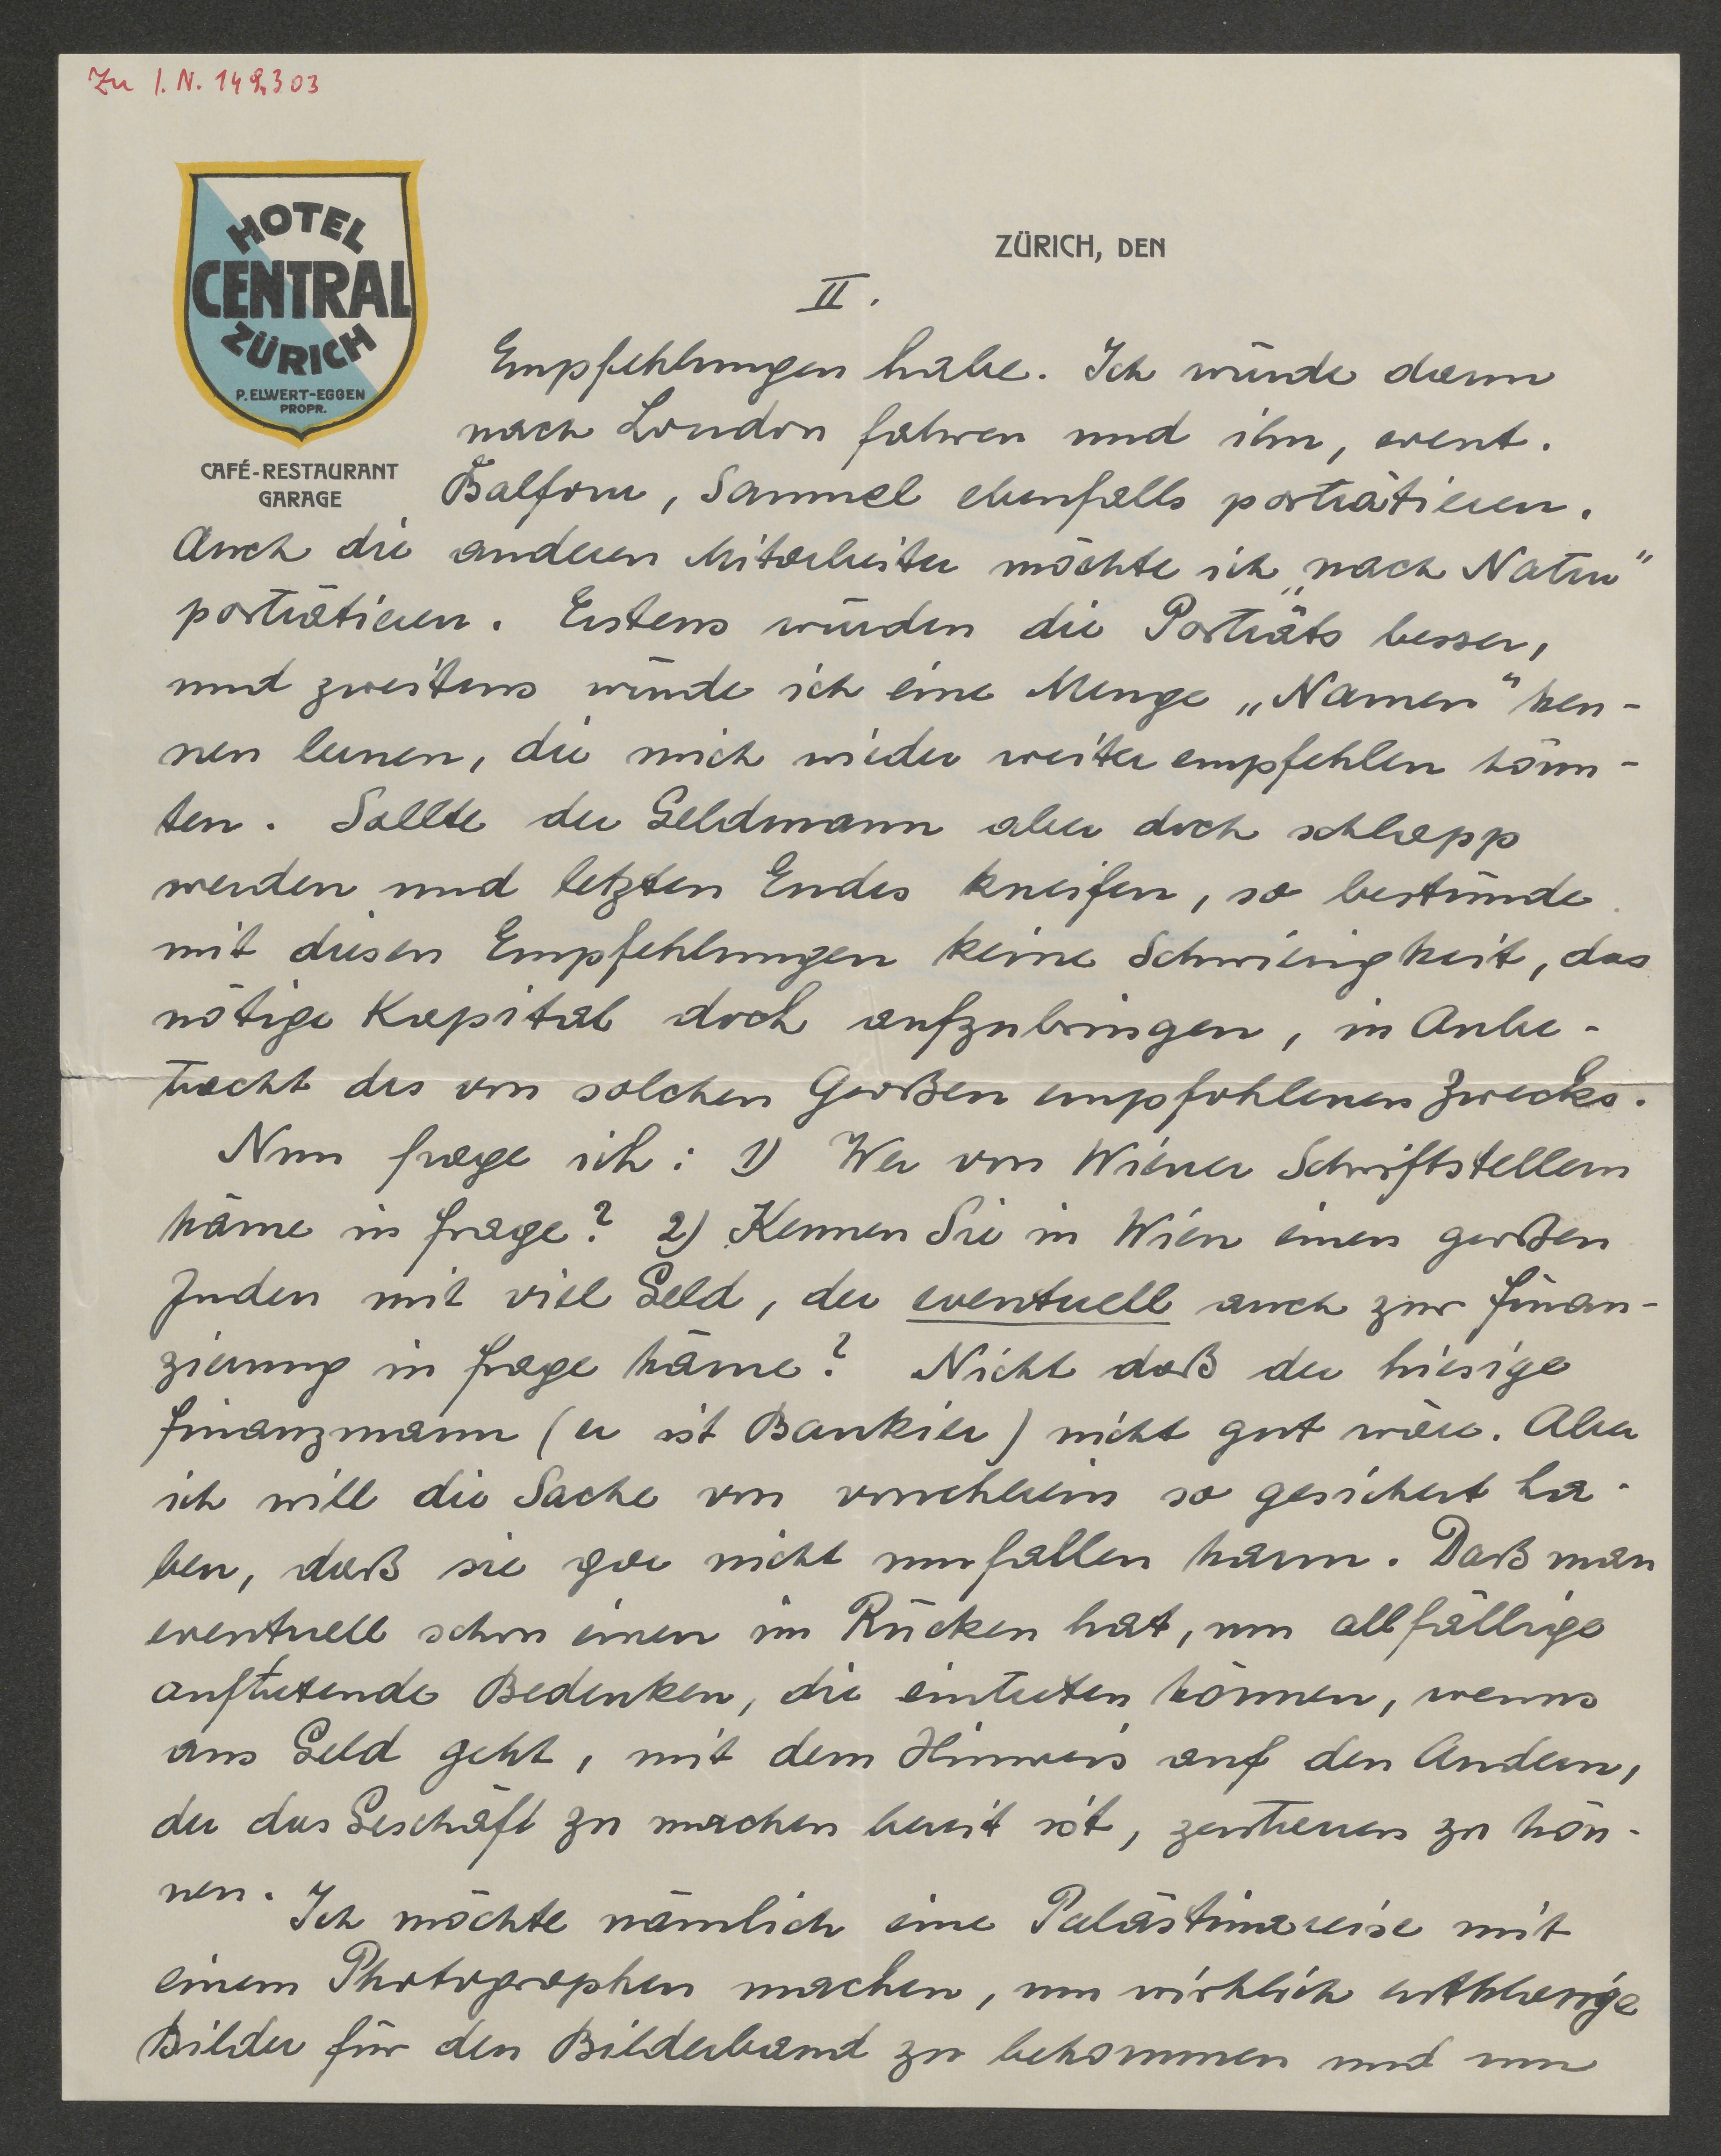 Zu I.N. 149.303
HOTEL
CENTRAL
ZÜRICH
P. ELWERT-EGGEN
PROPR.
CAFÉ-RESTAURANT
GARAGE
ZÜRICH, DEN
II.
Empfehlungen habe. Ich würde dann
nach London fahren und ihn, event.
Balfour, Samuel ebenfalls porträtieren.
Auch die anderen Mitarbeiter möchte ich „nach Natur“
porträtieren. Erstens würden die Porträts besser,
und zweitens würde ich eine Menge „Namen“ ken-
nen lernen, die mich wieder weiter empfehlen könn-
ten. Sollte der Geldmann aber doch schlapp
werden und letzten Endes kneifen, so bestünde
mit diesen Empfehlungen keine Schwierigkeit, das
nötige Kapital doch aufzubringen, in Anbe-
tracht des von solchen Großen empfohlenen Zwecks.
Nun frage ich: 1) Wer von Wiener Schriftstellern
käme in frage? 2) Kennen Sie in Wien einen großen
Juden mit viel Geld, der eventuell auch zur Finan-
zierung in frage käme? Nicht daß der hiesige
Finanzmann (er ist Bankier) nicht gut wäre. Aber
ich will die Sache von vornherein so gesichert ha-
ben, daß sie gar nicht umfallen kann. Daß man
eventuell schon einen im Rücken hat, um allfällige
auftretende Bedenken, die eintreten können, wenns
ans Geld geht, mit dem Hinweis auf den Andern,
der das Geschäft zu machen bereit ist, zerstreuen zu kön-
nen. Ich möchte nämlich eine Palästinareise mit
einem Photographen machen, um wirklich erstklassige
Bilder für den Bilderband zu bekommen und um